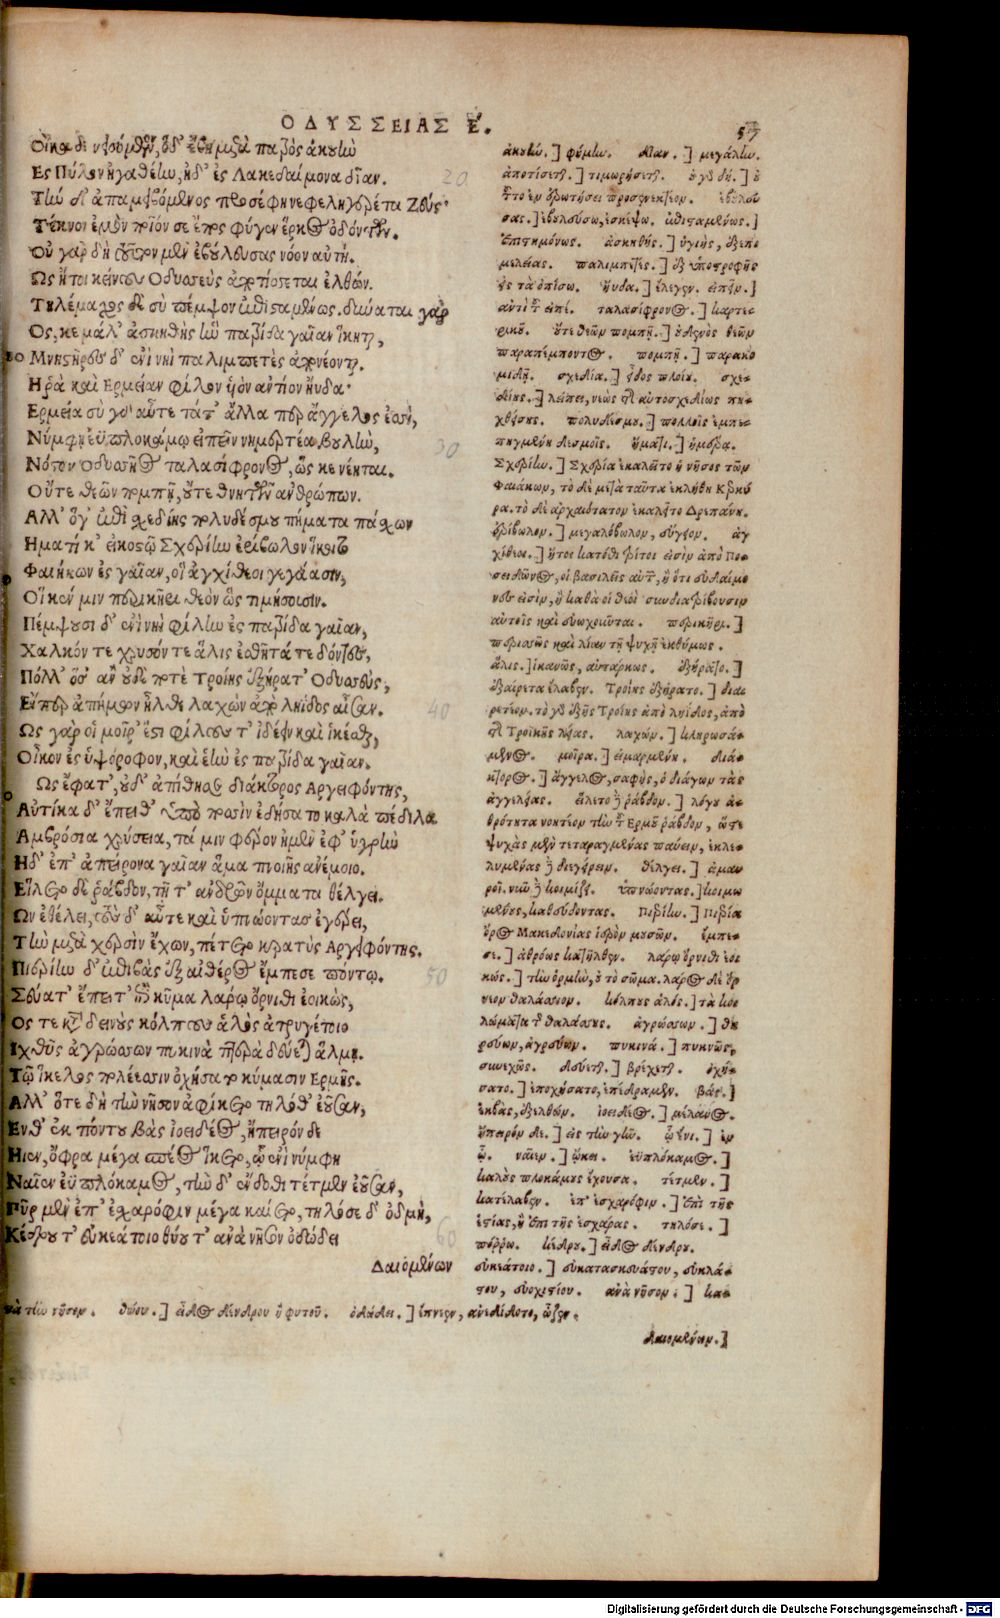 ΟΔΥΣΣΕΙΑΣ Ε.
57
Οἴκαδε νισόμενον, ὁδ' ἔβη μετὰ πατρὸς ἀκουὴν
Ες Πύλον ἠγαθέην, ἠδ' ἐς Λακεδαίμονα δῖαν.
20
Τὴν δ' ἀπαμειβόμενος προσέφη νεφεληγερέτα Ζεύς·
Τέκνον ἐμὸν ποῖόν σε ἔπος φύγεν ἕρκος ὀδόντων.
Οὐ γὰρ δὴ τοῦτον μὲν ἐβούλευσας νόον αὐτή.
Ως ἤτοι κείνους Οδυσεὺς ἀποτίσεται ἐλθών.
Τηλέμαχος δὲ σὺ πέμψον ἐπισταμένως. δύνασαι γὰρ
Ος, κε μάλ' ἀσκηθὴς ἣν πατρίδα γαῖαν ἵκηται,
Μνηστῆρες δ' ἐν νηῒ παλιμπετὲς ἀπονέονται.
Η ῥὰ καὶ Ερμείαν φίλον υἱὸν αὐτίον ηὔδα·
Ερμεία σὺ γὰρ αὖτε τά τ' ἄλλα περ ἄγγελος ἐσσί,
Νύμφῃ ἐϋπλοκάμῳ εἰπεῖν νημερτέα βουλὴν,
30
Νόστον Οδυσσῆος ταλασίφρονος, ὥς κε νέηται.
Οὔτε θεῶν πομπῇ, οὔτε θνητῶν ἀνθρώπων.
Αλλ' ὅγ' ἐπὶ σχεδίης πολυδέσμου πήματα πάσχων
Ηματί κ' εἰκοστῷ Σχερίην ἐρίβωλον ἵκοιτο
Φαιήκων ἐς γαῖαν, οἳ ἀγχίθεοι γεγάασιν,
Οἵ κέν μιν περικῆρι θεὸν ὣς τιμήσουσιν.
Πέμψουσι δ' ἐν νηῒ φίλην ἐς πατρίδα γαῖαν,
Χαλκόν τε χρυσόν τε ἅλις ἐσθῆτά τε δόντες,
Πόλλ' ὅσ' ἂν οὐδέ ποτὲ Τροίης ἐξήρατ' Οδυσσεύς,
Εἴπερ ἀπήμων ἦλθε λαχὼν ἀπὸ ληΐδος αἶσαν.
40
Ως γὰρ οἱ μοῖρ' ἔστι φίλους τ' ἰδέειν καὶ ἱκέσθαι,
Οἶκον ἐς ὑψόροφον, καὶ ἑὴν ἐς πατρίδα γαῖαν.
Ως ἔφατ', οὐδ' ἀπίθησε διάκτορος Αργειφόντης,
Αὐτίκα δ' ἔπειθ' ὑπὸ ποσσὶν ἐδήσατο καλὰ πέδιλα
Αμβρόσια χρύσεια, τά μιν φέρον ἠμὲν ἐφ' ὑγρὴν
Ηδ' ἐπ' ἀπείρονα γαῖαν ἅμα πνοιῇς ἀνέμοιο.
Εἵλετο δὲ ῥάβδον, τῇ τ' ἀνδρῶν ὄμματα θέλγει.
Ων ἐθέλει, τοὺς δ' αὖτε καὶ ὑπνώοντας ἐγείρει,
Τὴν μετὰ χερσὶν ἔχων, πέτετο κρατὺς Αργειφόντης.
Πιερίην δ' ἐπιβὰς ἐξ αἰθέρος ἔμπεσε πόντῳ.
50
Σεύατ' ἔπειτ' ἐπὶ κῦμα λάρῳ ὄρνιθι ἐοικὼς,
Ος τε κατὰ δεινοὺς κόλπους ἁλὸς ἀτρυγέτοιο
Ιχθῦς ἀγρώσσων πυκινὰ πτερὰ δεύεται ἅλμῃ.
Τῷ ἴκελος πολέεσσιν ὀχήσατο κύμασιν Ερμῆς.
Αλλ' ὅτε δὴ τὴν νῆσον ἀφίκετο τηλόθ' ἐοῦσαν,
Ενθ' ἐκ πόντου βὰς ἰοειδέος, ἤπειρόν δε
Ηιεν, ὄφρα μέγα σπέος ἵκετο, ᾧ ἐνὶ νύμφη
Ναῖεν ἐϋπλόκαμος, τὴν δ' ἔνδοθι τέτμεν ἐοῦσαν,
Πῦρ μὲν ἐπ' ἐσχαρόφιν μέγα καίετο, τηλόσε δ' ὀδμὴ,
Κέδρου τ' εὐκεάτοιο θύου τ' ἀνὰ νῆσον ὀδώδει
60
Δαιομένων
ἀκουήν.] φήμην. δῖαν.] μεγάλην.
ἀποτίσεται.] τιμωρήσεται. οὐ γὰρ δή.] ὃ
σας.] ἐβουλεύσω, ἐσκέψω. ἐπισταμένως.]
ἐπιστημόνως. ἀσκηθής.] ὑγιὴς, ἐξ ἐπι
μελείας. παλιμπετές.] ἐξ ὑποστροφῆς
εἰς τὰ ὀπίσω. ηὔδα.] ἔλεγεν. εἰπεῖν.]
ἀντὶ τοῦ εἰπέ. ταλασίφρονος.] καρτε-
ρικοῦ. οὔτε θεῶν πομπῇ.] οὐδενὸς θεῶν
παραπέμποντος. πομπῇ.] παρακο
μιδῇ. σχεδία.] εἶδος πλοίου. σχε-
δίης.] λείπει, νεὼς τῆς αὐτοσχεδίως πη-
χθείσης. πολυδέσμου.] πολλοῖς ἐμπε-
πηγμένη δεσμοῖς. ἤματι.] ἡμέρᾳ.
Σχερίην.] Σχερία ἐκαλεῖτο ἡ νῆσος τῶν
Φαιάκων, τὸ δὲ μετὰ ταῦτα ἐκλήθη Κέρκυ
ρα. τὸ δὲ ἀρχαιότατον ἐκαλεῖτο Δρεπάνη.
ἐρίβωλον.] μεγαλόβωλον, εὔγεων. ἀγ
χίθεοι.] ἤτοι κατόθι τρίτοι εἰσὶν ἀπὸ Πο-
σειδῶνος, οἱ βασιλεῖς αὐτῶν, ἢ ὅτι εὐδαίμο
νες εἰσὶν, ἢ καθὰ οἱ θεοὶ συνδιατρίβουσιν
αὐτοῖς καὶ συνωχοῦνται. περικῆρι.]
περισσῶς καὶ λίαν τῇ ψυχῇ ἐκθύμως.
ἅλις.] ἱκανῶς, αὐταρκως. ἐξήρατο.]
ἐξαίρετα ἔλαβεν. Τροίης ἐξήρατο.] διαι
ρετέον. τὸ γὰρ ἑξῆς Τροίης ἀπὸ ληΐδος, ἀπὸ
τῆς Τροϊκῆς λείας. λαχών.] κληρωσά-
μενος. μοῖρα.] εἱμαρμένη. διά-
κτορος.] ἄγγελος, σαφὴς, ὁ διάγων τὰς
ἀγγελίας. εἵλετο δὲ ῥάβδον.] λόγῳ ἀ-
θρότητα νοητέον τὴν τοῦ Ερμοῦ ῥάβδον, ὥστε
ψυχὰς μὲν τεταραγμένας παύειν, ἐκλε-
λυμένας δὲ διεγείρειν. θέλγει.] ἀμαυ
ροῖ. νῦν δὲ κοιμίζει. ὑπνώοντας.] κοιμω
μένους, καθεύδοντας. Πιερίην.] Πιερία
ὄρος Μακεδονίας ἱερὸν μουσῶν. ἔμπε-
σε.] ἀθρόως κατῆλθεν. λάρῳ ὄρνιθι ἐοι
κώς.] τὴν ὁρμὴν, οὐ τὸ σῶμα. λάρος δὲ ὄρ
νεον θαλάσσιον. κόλπους ἁλός.] τὰ κοι
λώματα τῆς θαλάσσης. ἀγρώσσων.] θη
ρεύων, ἀγρεύων. πυκινά.] πυκνῶς,
συνεχῶς. δεύεται.] βρέχεται. ὀχή-
σατο.] ἐποχήσατο, ἐπέδραμεν. βάς.]
ἐκβὰς, ἐξελθών. ἰοειδέος.] μέλανος.
ἤπειρόν δε.] εἰς τὴν γῆν. ᾧ ἐνι.] ἐν
ᾧ. ναῖεν.] ᾤκει. εὐπλόκαμος.]
καλοὺς πλοκάμους ἔχουσα. τέτμεν.]
κατέλαβεν. ἐπ' ἐσχαρόφιν.] ἐπὶ τῆς
ἑστίας, ἢ ἐπὶ τῆς ἐσχάρας. τηλόσε.]
πόρρω. κέδρου.] εἶδος δένδρου.
εὐκεάτοιο.] εὐκατασκευάστου, εὐκλά-
στου, εὐσχίστου. ἀνὰ νῆσον.] κα-
τὰ τὴν νῆσον. θύου.] εἶδος δένδρου ἢ φυτοῦ. ὀδώδει.] ἔπνεεν, ἀνεδίδοτο, ὦζεν.
δαιομένων.]
Digitalisierung gefördert durch die Deutsche Forschungsgemeinschaft - DFG